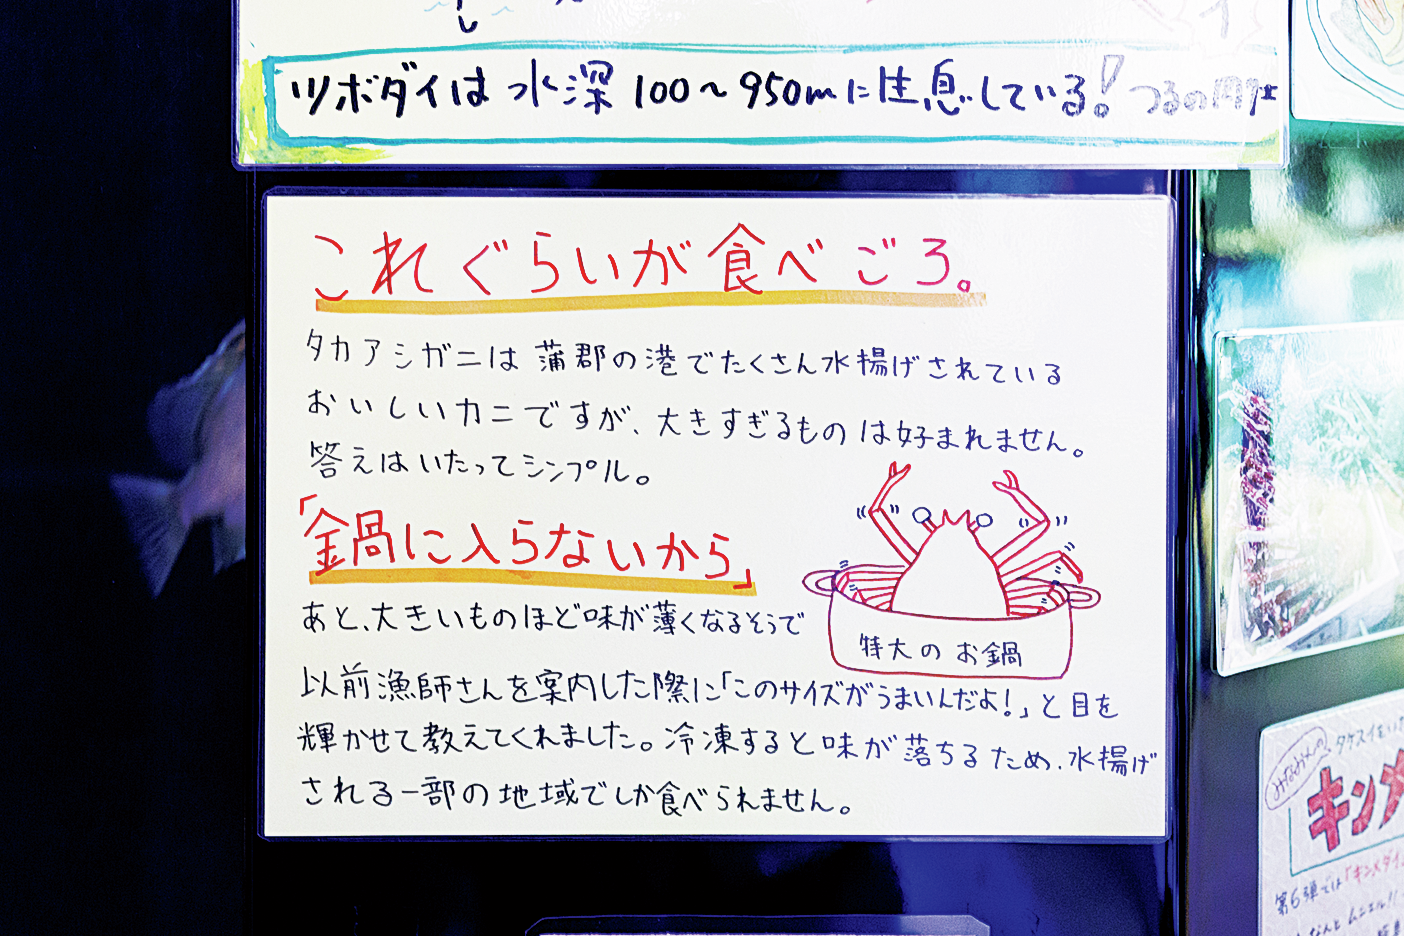 ツボダイは水深100～950mに生息している! つるの
これぐらいが食べごろ。
タカアシガニは蒲郡の港でたくさん水揚げされている
おいしいカニですが、大きすぎるものは好まれません。
答えはいたってシンプル。
「鍋に入らないから」
あと、大きいものほど味が薄くなるそうで
以前漁師さんを案内した際に「このサイズがうまいんだよ!」と目を
輝かせて教えてくれました。冷凍すると味が落ちるため、水揚げ
される一部の地域でしか食べられません。
特大のお鍋
キンメ
第6弾では「キンメダイ
なんと ムニエル!!